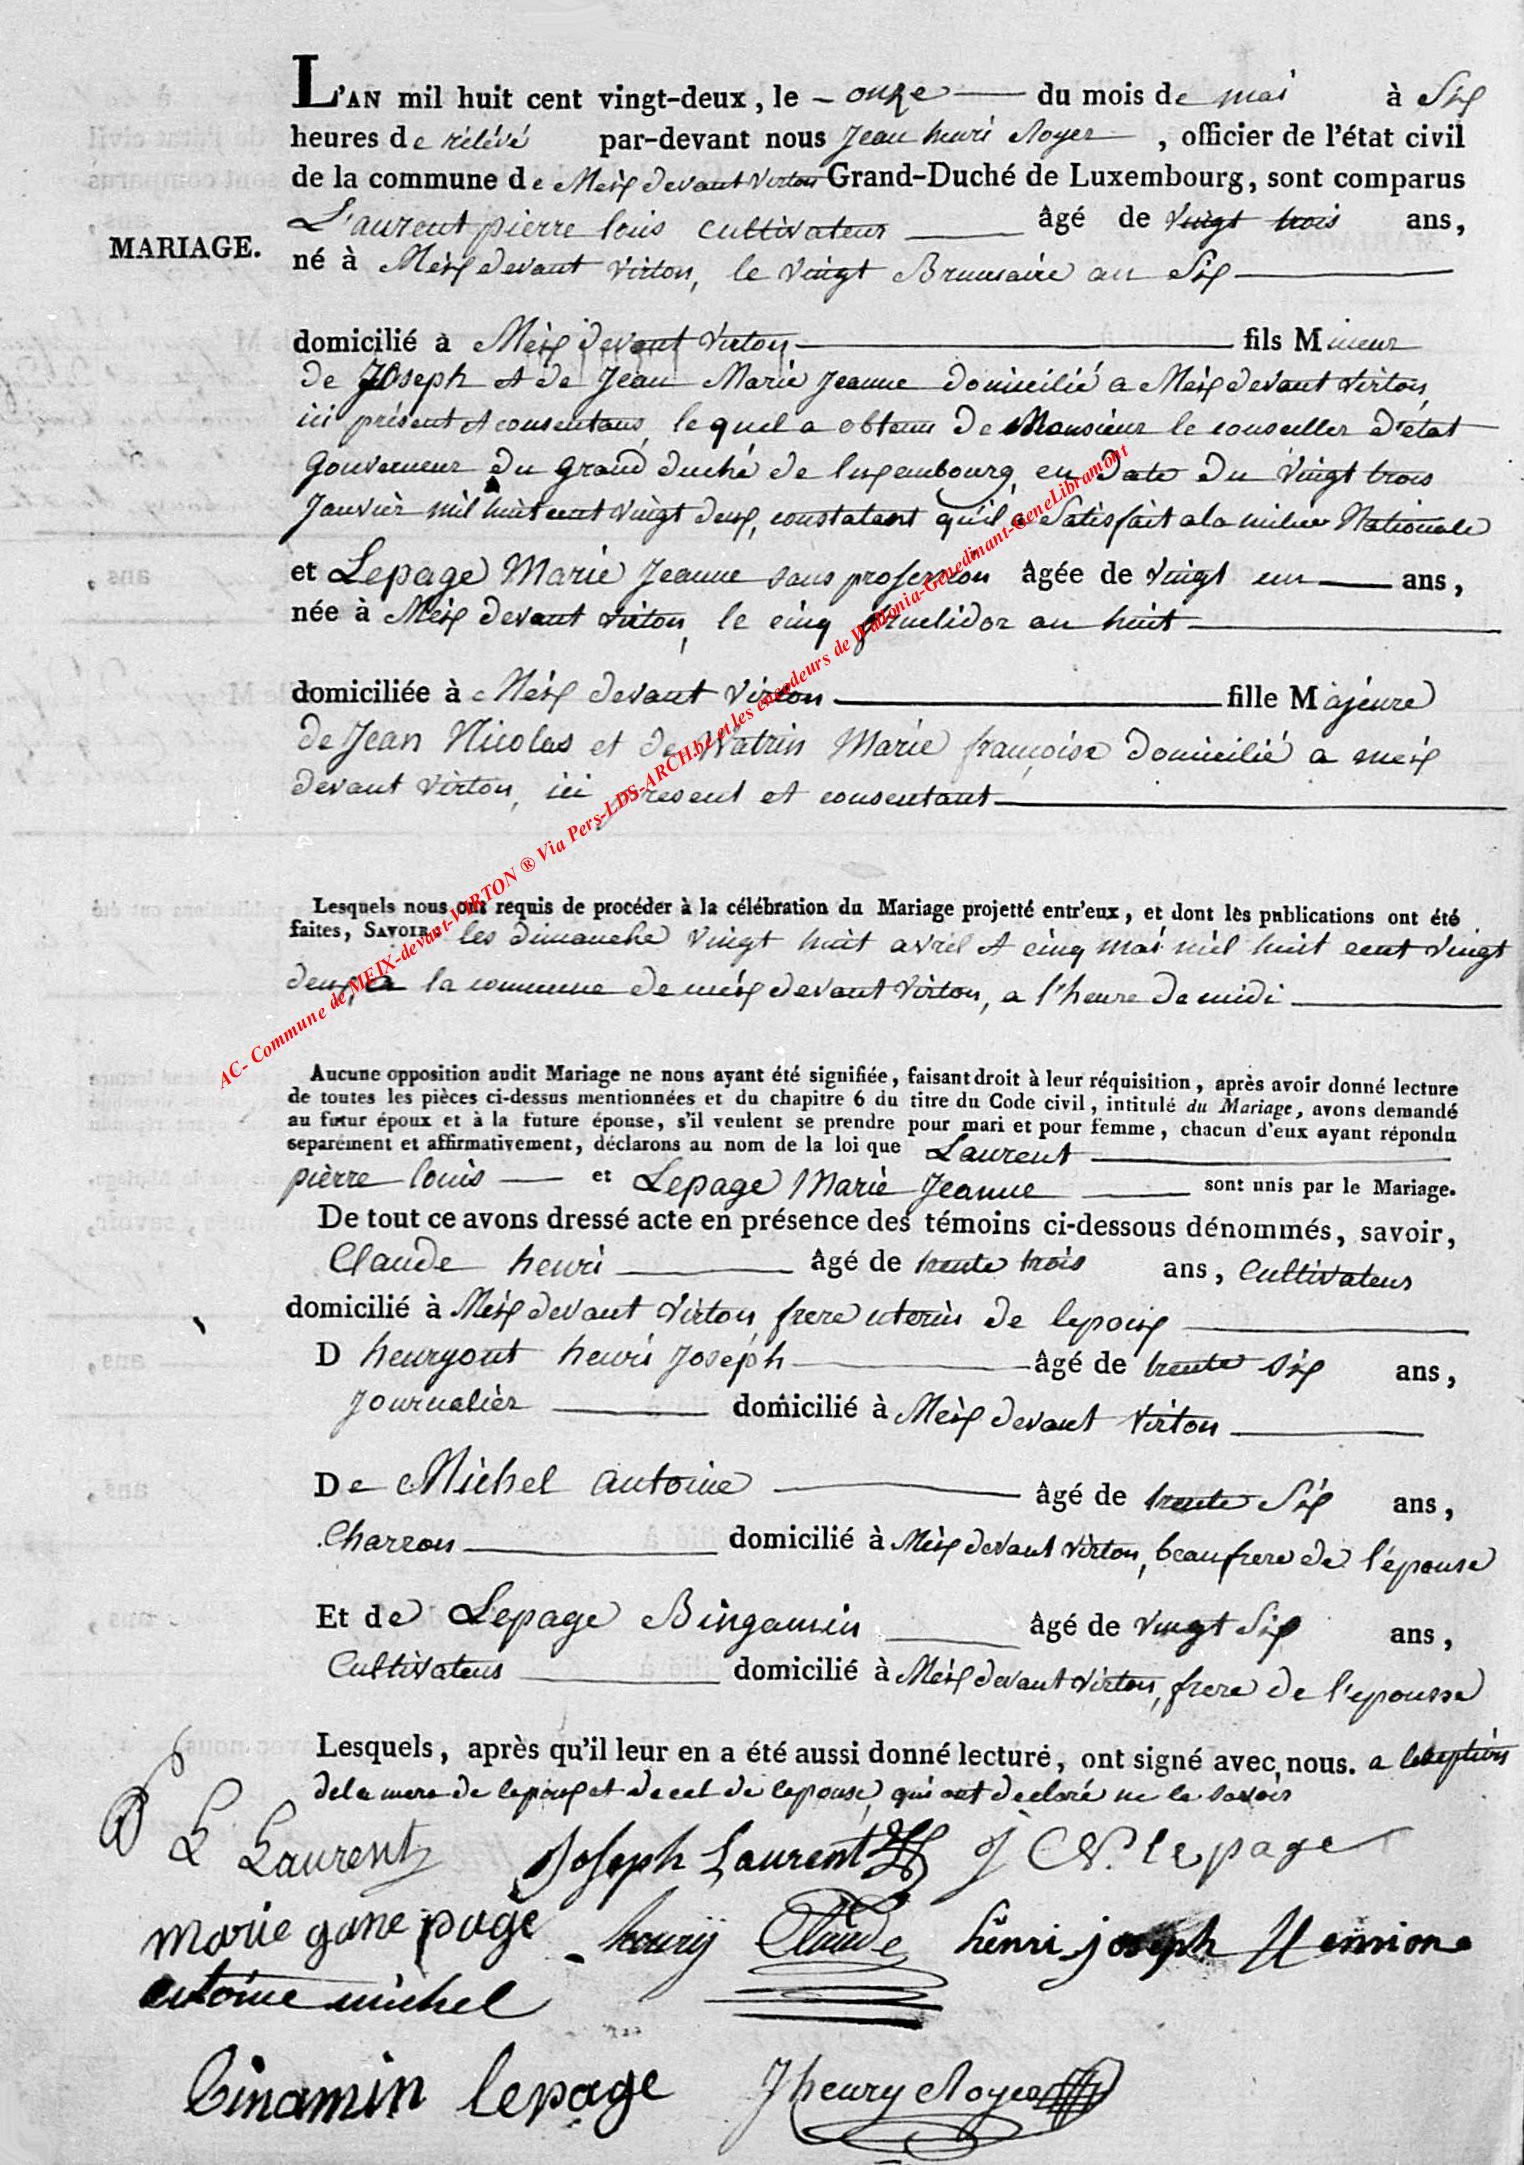 L'AN mil huit cent vingt-deux, le onze du mois de mai à Six
heures de rélévé par-devant nous Jean henri Royer, officier de l'état civil
de la commune de Meix devant Virton Grand-Duché de Luxembourg, sont comparus
L'aurent pierre louis cultivateur âgé de vingt trois ans,
MARIAGE.
né à Meix devant Virton, le vingt Brumaire an Six
domicilié à Meix devant Virton fils Mineur
de Joseph et de Jean Marie Jeanne domicilié a Meix devant Virton,
ici présent et consentans, lequel a obtenu de Monsieur le conseiller d'état
Gouverneur du grand duché de luxembourg, en Date du vingt trois
Janvièr mil huit cent vingt deux, constatant qu'il a Satisfait a la milice Nationale
et Lepage Marie Jeanne sans profession âgée de vingt un ans,
née à Meix devant Virton, le cinq an huit
domiciliée à Meix devant Virton fille Majeure
de Jean Nicolas et de Watrin Marie françoise domicilié a meix
devant Virton, ici présent et consentant
Lesquels nous ont requis de procéder à la célébration du Mariage projetté entr'eux, et dont les publications ont été
faites, SAVOIR: les dimanche vingt huit avril et cinq mai mil huit cent vingt
deux, a la commune de meix devant Virton, a l'heure de midi
Aucune opposition audit Mariage ne nous ayant été signifiée, faisant droit à leur réquisition, après avoir donné lecture
de toutes les pièces ci-dessus mentionnées et du chapitre 6 du titre du Code civil, intitulé du Mariage, avons demandé
au futur époux et à la future épouse, s'il veulent se prendre pour mari et pour femme, chacun d'eux ayant répondu
séparément et affirmativement, déclarons au nom de la loi que Laurent
pièrre louis et Lepage Marie Jeanne sont unis par le Mariage.
De tout ce avons dressé acte en présence des témoins ci-dessous dénommés, savoir,
Claude henri âgé de trente trois ans, Cultivateur
domicilié à Meix devant Virton, frere uterin de lepoux
D henryont henri Joseph âgé de trente six ans,
Journalièr domicilié à Meix devant Virton
De Michel antoine âgé de trente Six ans,
Charron domicilié à Meix devant Virton, beaufrere de l'épouse
Et de Lepage Bingamin âgé de vingt Six ans,
Cultivateur domicilié à Meix devant Virton, frere de l'epousse
Lesquels, après qu'il leur en a été aussi donné lecture, ont signé avec nous. a
dela mere de lepoux et de cel de lepouse, qui ont declaré ne le savoir
P L Laurent Joseph Laurent J N lepage
marie gane page henrij Claude henri joseph Hennion
antoine michel
Binamin lepage J henry Royer
AC- Commune de MEIX-devant-VIRTON ® Via Pers-LDS-ARCH.be et les encodeurs de Wallonia-Genedinant-GeneLibramont